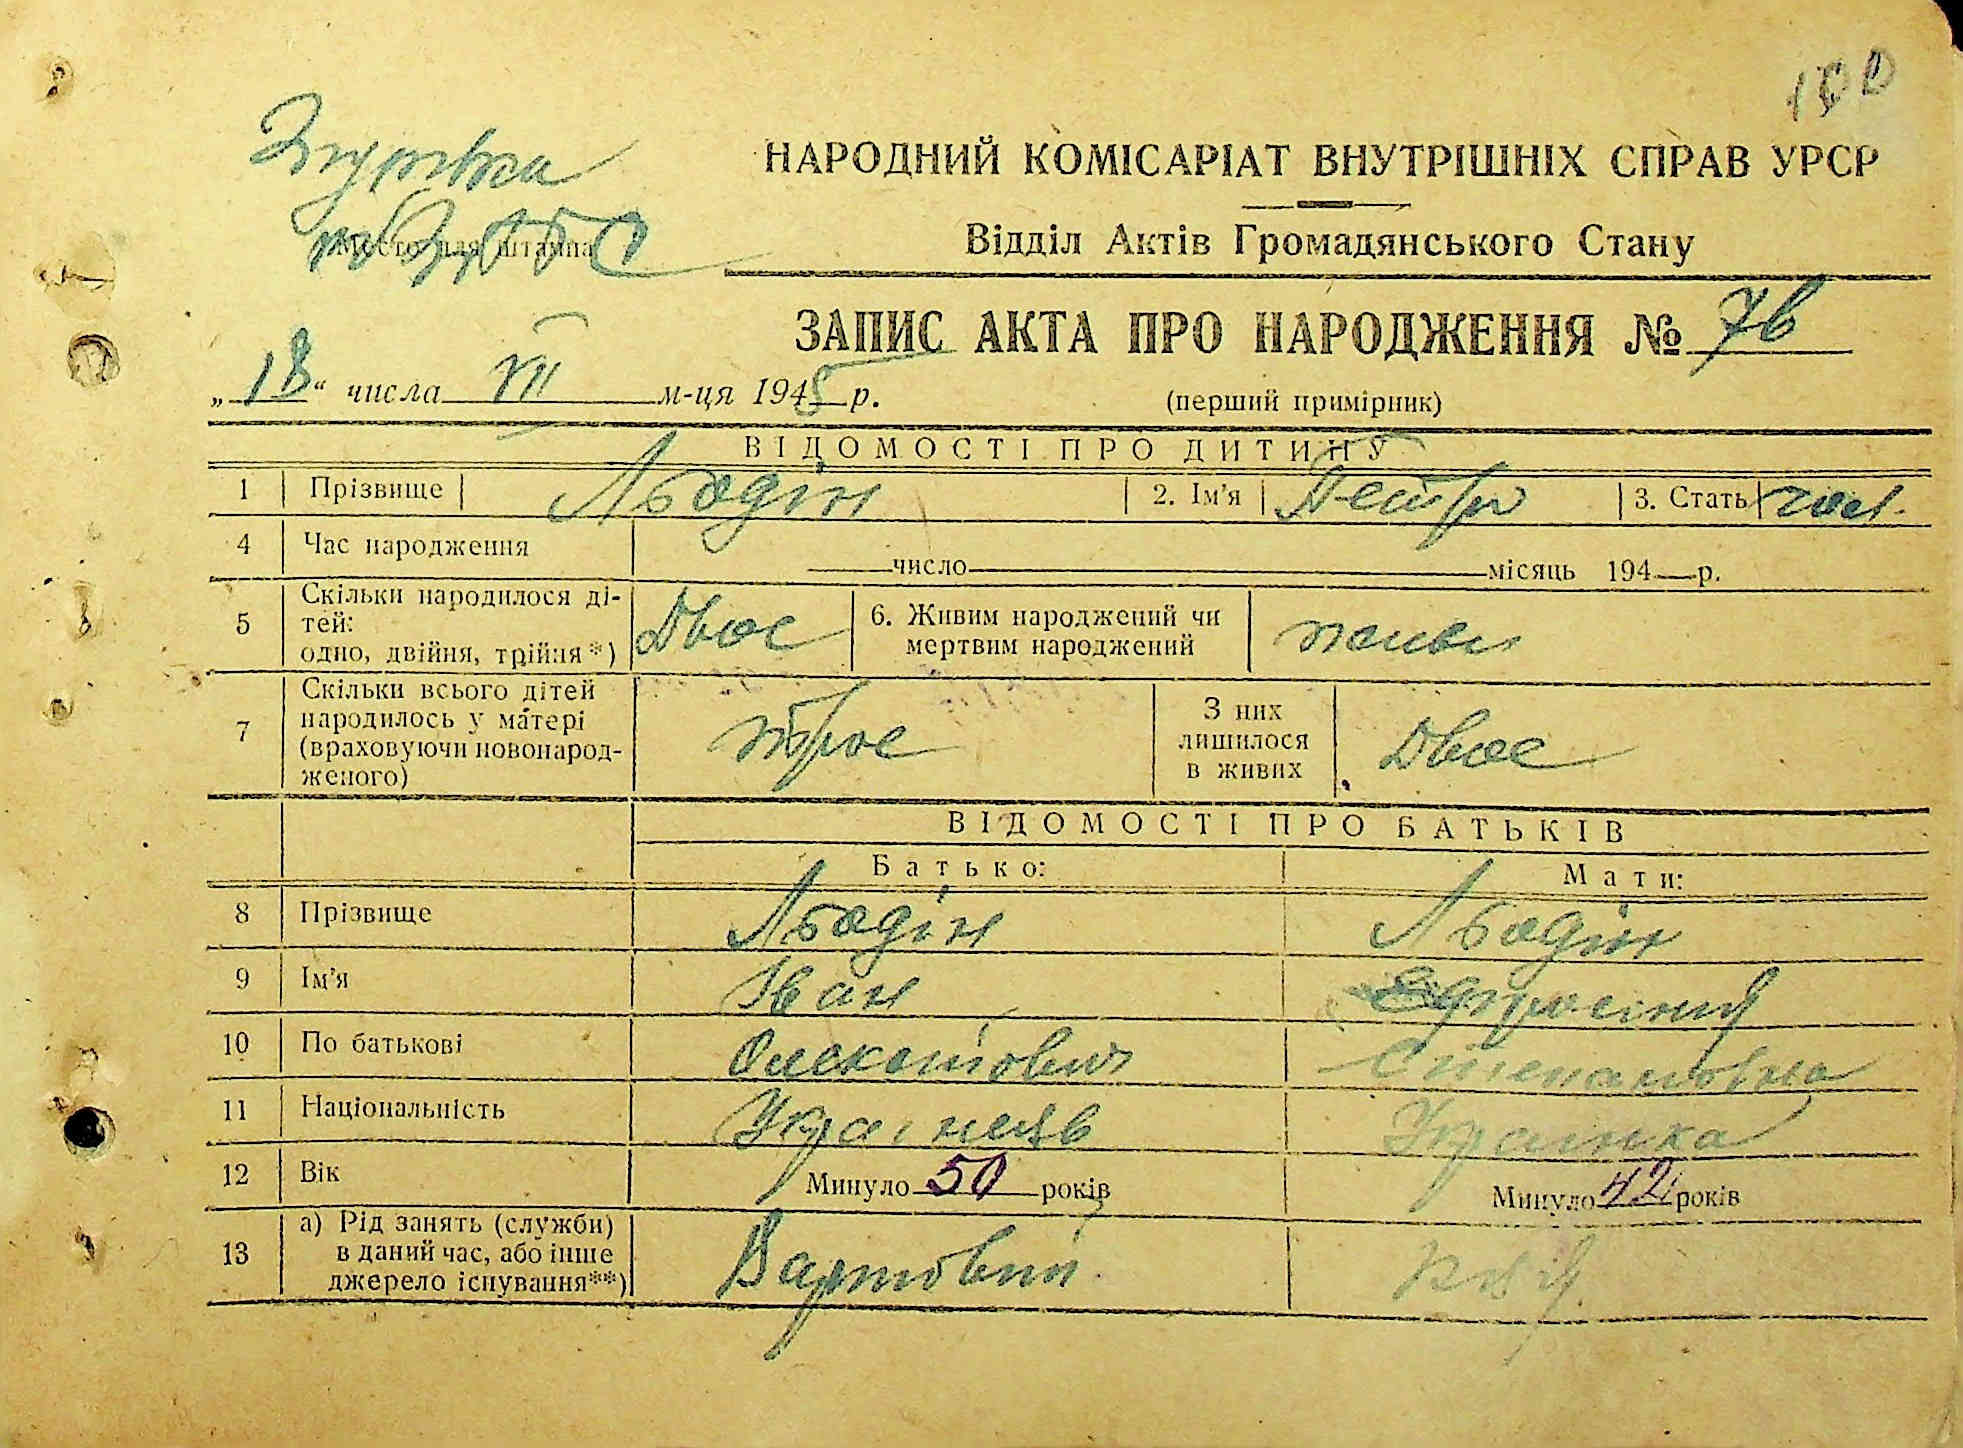 100
Згурівка
НАРОДНИЙ КОМІСАРІАТ ВНУТРІШНІХ СПРАВ УРСР
Місто для штампа
Відділ Актів Громадянського Стану
ЗАПИС АКТА ПРО НАРОДЖЕННЯ № 76
„18“ числа VII м-ця 1945 р.
(перший примірник)
ВІДОМОСТІ ПРО ДИТИНУ
1 Прізвище Льодін 2. Ім'я Петро 3. Стать чол.
4 Час народження число місяць 194 р.
5 Скільки народилося ді-
тей:
одно, двійня, трійня*) Двоє 6. Живим народжений чи
мертвим народжений живи
7 Скільки всього дітей
народилось у матері
(враховуючи новонарод-
женого) троє З них
лишилося
в живих Двоє
ВІДОМОСТІ ПРО БАТЬКІВ
Батько: Мати:
8 Прізвище Льодін Льодін
9 Ім'я Іван Єфросинія
10 По батькові Степановна
11 Національність Українець Українка
12 Вік Минуло 50 років Минуло 42 років
13 а) Рід занять (служби)
в даний час, або інше
джерело існування**) Вартовий